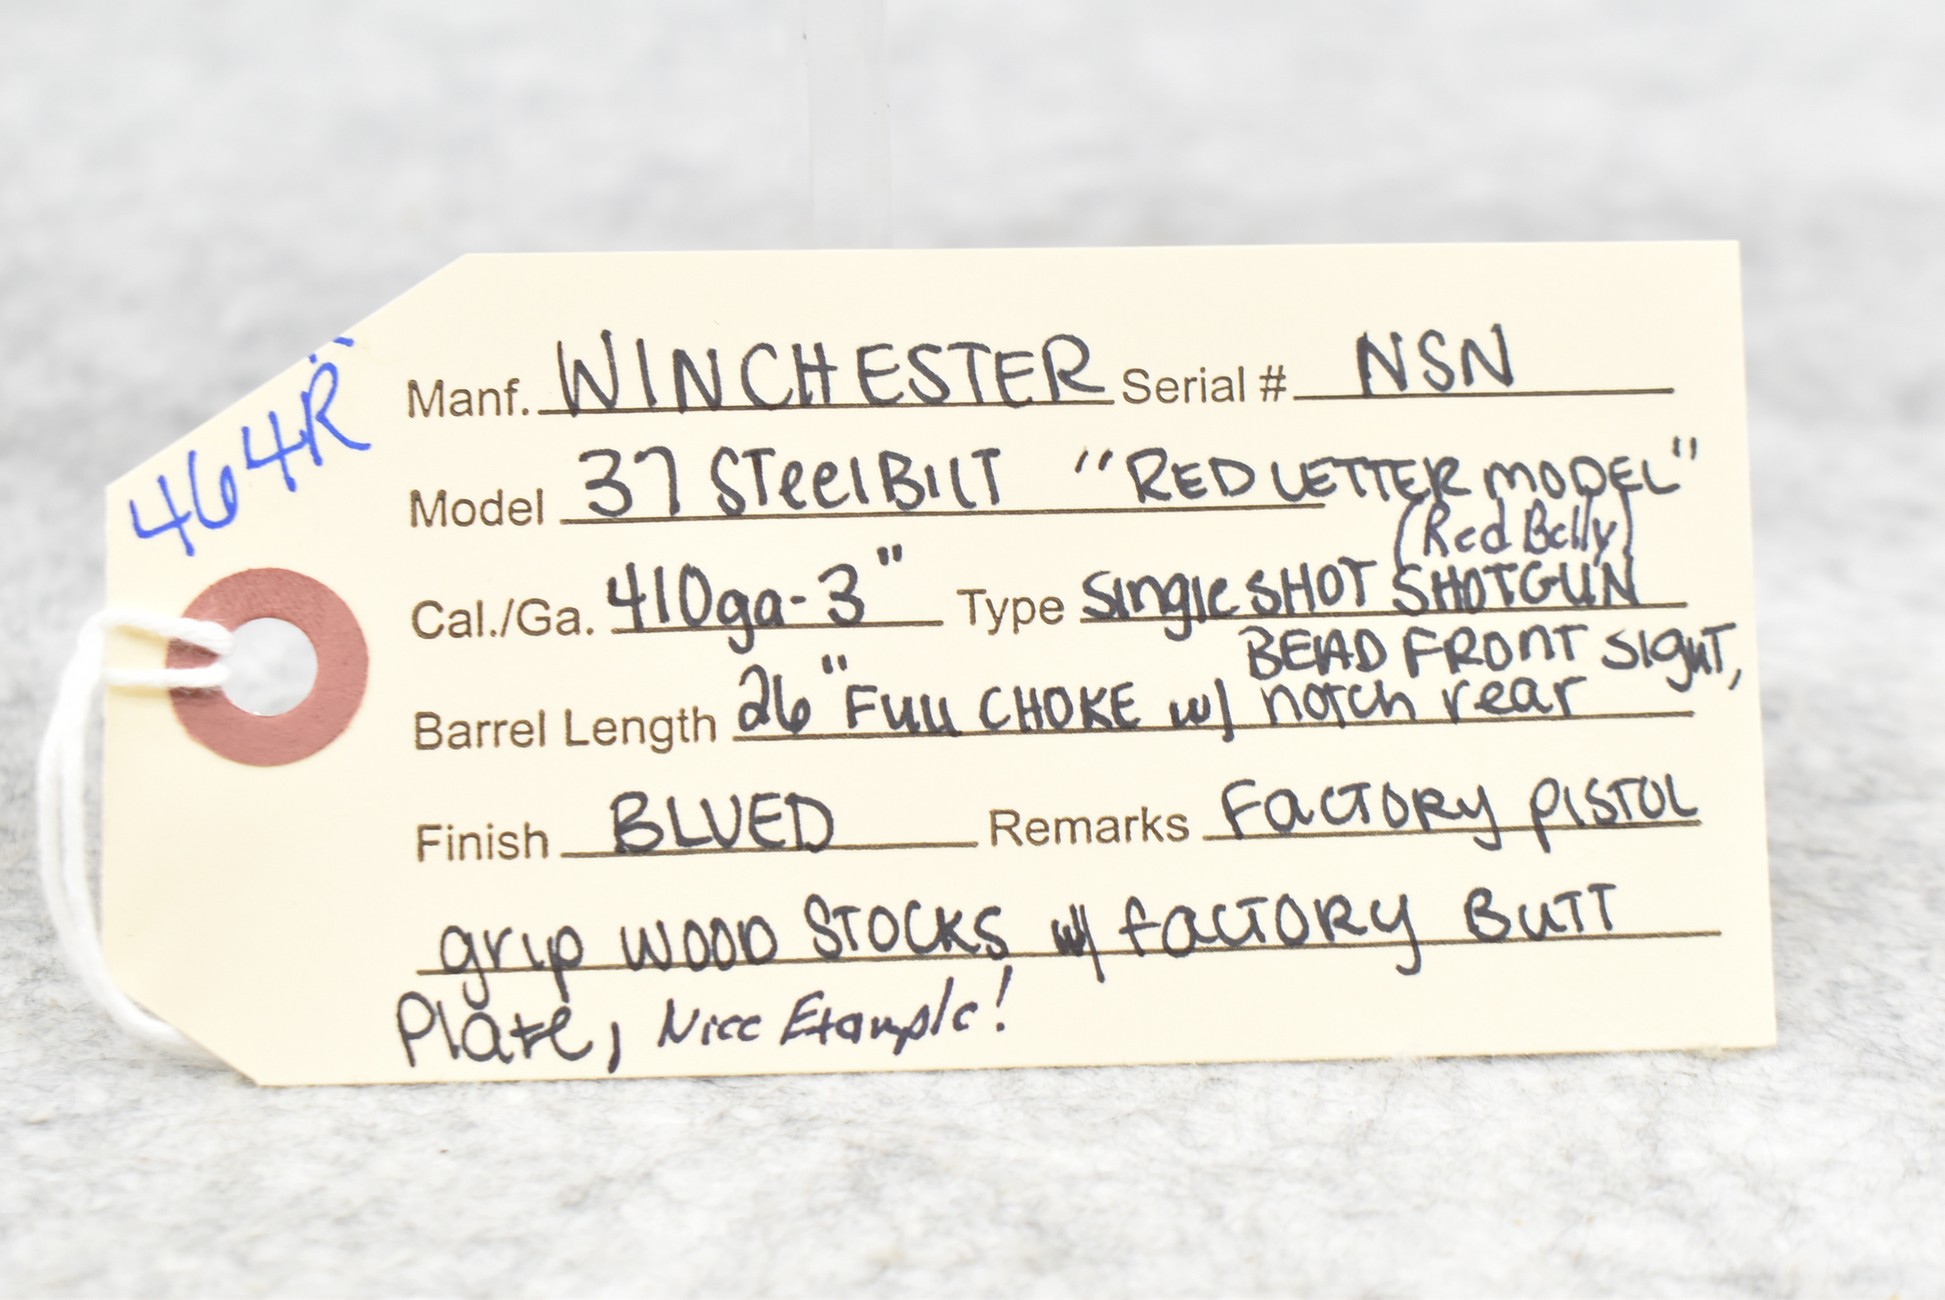 464R
Manf. WINCHESTER Serial # NSN
Model 37 STeelBILT "RED LETTER MODEL"
(Red Belly)
Cal./Ga. 410ga-3" Type SingleSHOT SHOTGUN
BEAD FRONT SIGHT,
Barrel Length 26" FULL CHOKE w/ notch rear
Finish BLUED Remarks FACTORY PISTOL
grip WOOD STOCKS w/ FACTORY BUTT
Plate, Nice Example!